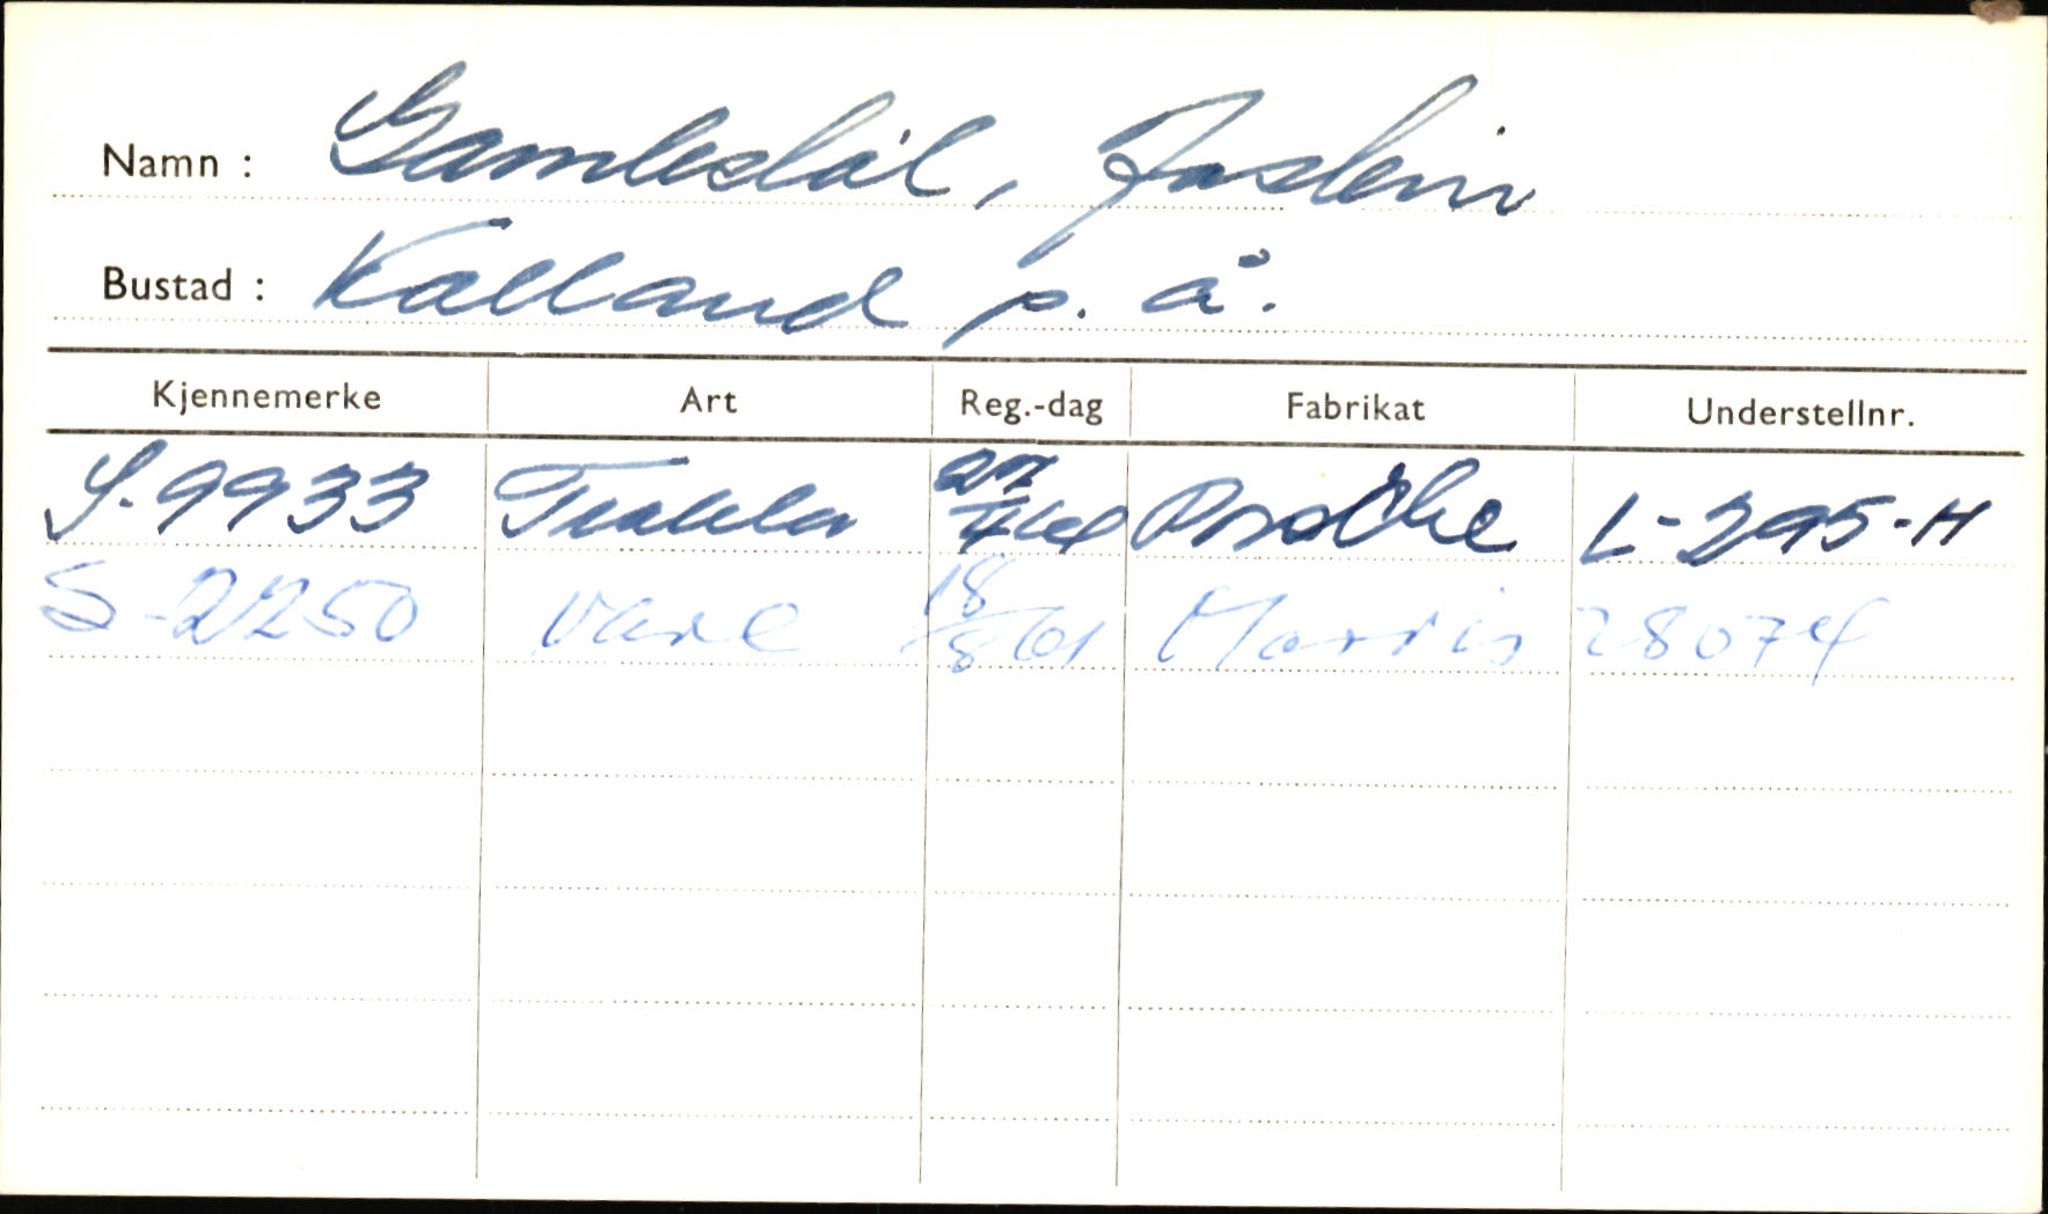 Namn : Gamlestøl, Jostein
Bustad : Kalland p. å.
Kjennemerke Art Reg.-dag Fabrikat Understellnr.
S-9933 Traktor Porsche L-295-H
S-2250 Vare 18/8 61 Morris 28074